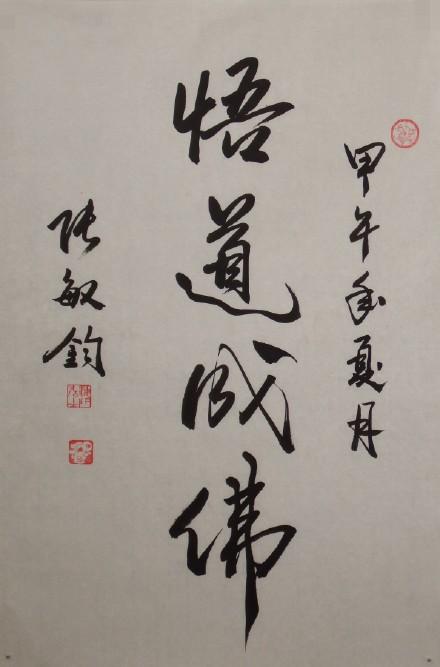 甲午年夏月
悟道成佛
张敏钧